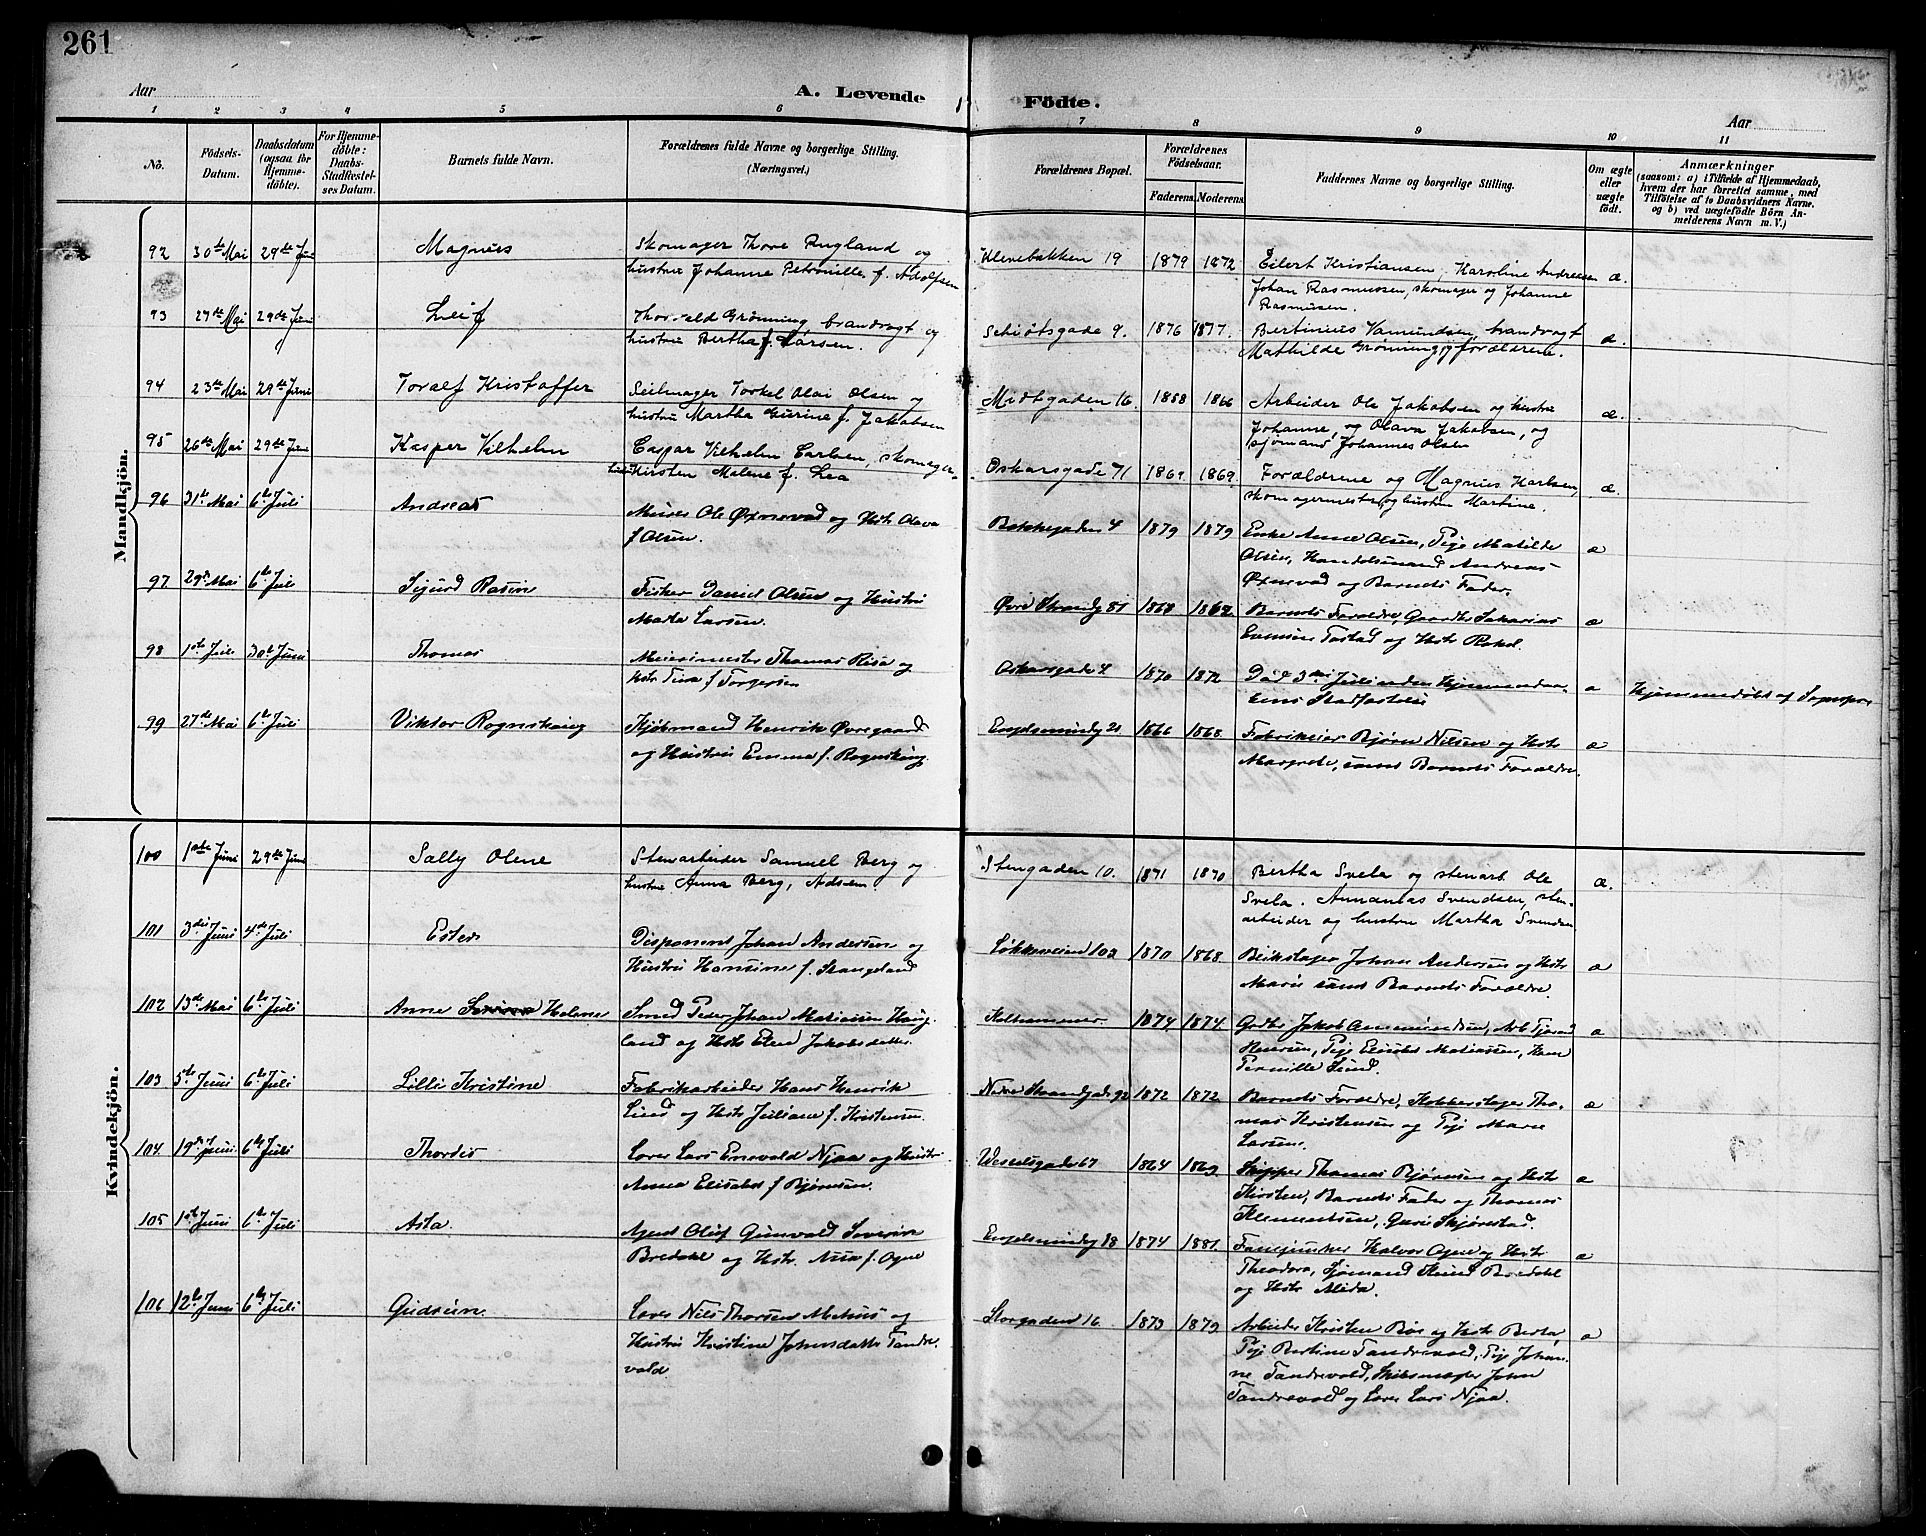 261
Aar
A. Levende Födte.
Aar
1 2 3 4 5 6 7 8 9 10 11
No.
Födsels-Datum.
Daabsdatum (ogsaa for Hjemme-döbte).
For Hjemme-döbte: Daabs-Stadfæstel-ses Datum.
Barnets fulde Navn.
Forældrenes fulde Navne og borgerlige Stilling.
(Næringsvei.)
Forældrenes Bopæl.
Forældrenes Födselsaar.
Faderens. Moderens.
Faddernes Navne og borgerlige Stilling.
Om ægte eller uægte födt.
Anmærkninger
(saasom: a) i Tilfælde af Hjemmedaab,
hvem der har forrettet samme, med
Tilföielse af to Daabsvidners Navne.
og b) ved uægtefödte Börn An-
melderens Navn m. V.)
Mandkjön.
92 30de Mai 29de Juni Magnus Skomager Thore Rugland og
hustru Johanne Petronille f. Adolfsen
Klevebakken 19 1879 1872 Eilert Kristiansen, Karoline Andreasen
Johan Rasmussen, skomager og Johanne
Rasmusen. æ.
93 27de Mai 29de Juni Leif Thorvald Grønning, brandvagt og
hustru Bertha f. Larsen.
Schiøtsgade 9. 1876 1877. Bertinius Vamundsen, brandvagt
Mathilde Grønning og forældrene. æ.
94 23de Mai 29de Juni Toralf Kristoffer Seilmager Torkel Olai Olsen og
hustru Martha Gurine f. Jakobsen
Midtgaden 16. 1858 1866 Arbeider Ole Jakobsen og hustru
Johanne, og Olava Jakobsen, og
sjømand Johannes Olsen æ.
95 26de Mai 29de Juni Kasper Vilhelm Caspar Vilhelm Carlsen, skomager,
hustru Kirsten Malene f. Lea
Oskarsgade 71 1869 1869. Forældrene og Magnus Karlsen,
skomagermester og hustru Martine. æ.
96 31te Mai 6te Juli Andreas Murer Ole Øxnevad og Hstr Olava
f Olsen.
Bakkegaden 4 1879 1879 Enke Anne Olsen, Pige Matilde
Olsen, Handelsmand Andreas
Øxnevad og Barnets Fader. æ
97 29de Mai 6te Juli Sigurd Rasmus Fisker Daniel Olsen og Hustru
Marta Larsen.
Øvre Strandg 81 1868 1862 Barnets Forældre, Gaardbr Sakarias
Evensen Tastad og Hstr Rakel. æ
98 1ste Juli 30te Juni Thomas Meierimester Thomas Risa og
Hstr Tina f Torgersen
Oskarsgade 4 1870 1872 Død 3die Juli inden Hjemmedaa-
bens Stadfæstelse æ Hjemmedøbt af Sognepr
99 27de Mai 6te Juli Viktor Rognskaug Kjøbmand Henrik Øvregaard
og Hustru Emma f. Rognskaug
Engelsmindeg 21 1866 1868 Fabrikeier Bjørn Nilsen og Hstr
Margrete, samt Barnets Forældre. æ
Kvindekjön.
100 1ste Juni 29de Juni Sally Olene Stenarbeider Samuel Berg og
hustru Anna Berg, Adsen
Stengaden 10. 1871 1870 Bertha Svela og stenarb. Ole
Svela. Annanias Svendsen, sten-
arbeider og hustru Martha Svendsen æ.
101 3die Juni 4de Juli Ester Disponent Johan Andersen og
Hustru Hansine f. Stangeland
Løkkeveien 102 1870 1868 Beikstager Johan Andersen og Hstr
Marie samt Barnets Forældre. æ
102 13de Mai 6te Juli Anne Helene Smed Peder Johan Matiasen Haug-
land og Hstr Elen Jakobsdatter
Kalhammer. 1874 1874 Gaardbr Jakob Ommundsen, Arb Tjerand
Iversen, Pige Elisabet Matiassen,
Pernille Lund. æ
103 5te Juni 6te Juli Lilli Kristine Fabrikarbeider Hans Henrik
Lund og Hstr Juliane f. Kristensen.
Nedre Strandgade 92 1872 1872 Barnets Forældre, Kobberslager Tho-
mas Kristensen og Pige Marie
Larsen. æ
104 19de Juni 6te Juli Thordis Lærer Lars Enevald Njaa og Hustru
Anna Elisabet f Bjørnsen.
Wesselsgade 67 1864 1869 Skipper Thomas Bjørnsen og Hstr
Kirsten, Barnets Fader og Thomas
Klementsen, Guri Skjørestad. æ
105 1ste Juni 6te Juli Asta Agent Oluf Gunvald Severin
Bredahl og Hstr. Anna f. Ogne
Engelsmindeg 18 1874 1881 Fanejunker Halvor Ogne og Hstr
Theodora, Sjømand Knud Bredahl
og Hstr Alida. æ
106 12te Juni 6te Juli Gudrun Lærer Nils Thorsen Mehus og
Hustru Kristine Johnsdatter Tandre-
vald
Storgaden 16 1873 1879 Arbeider Kristen Bøe og Hstr Berta,
Pige Bertine Tandrevald, Pige Johan-
ne Tandrevald, Skibsmægler John
Tandrevald og Lærer Lars Njaa. æ